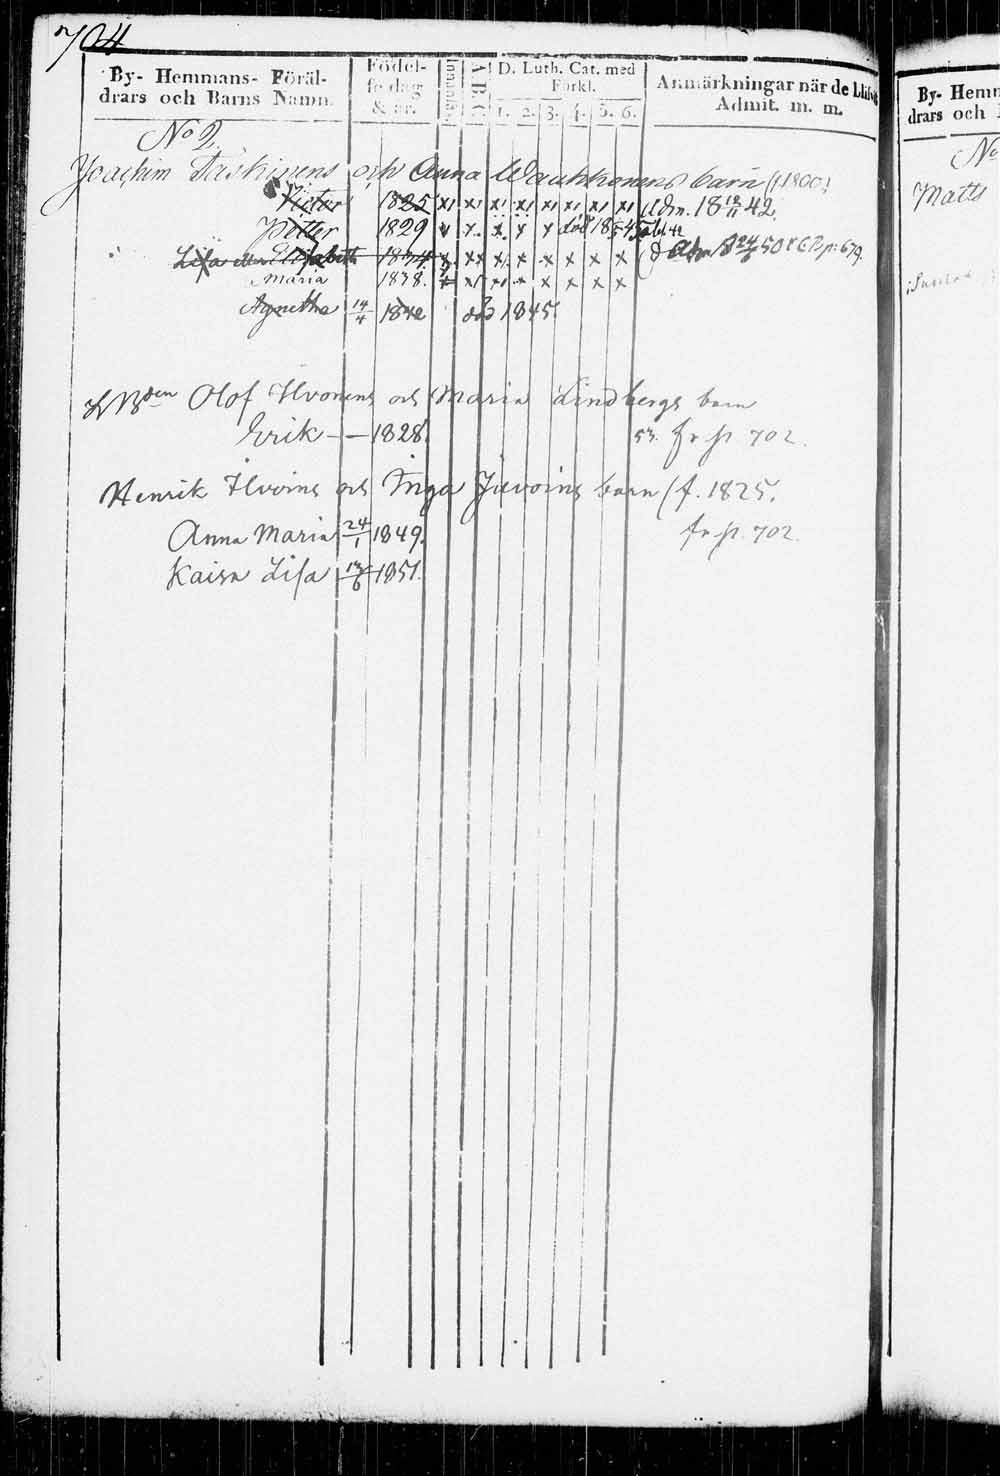 704
By- Hemmans- Föräl-
drars och Barns Namn.
Födel-
se dag
& år.
Innanläs
A B C
D. Luth. Cat. med
Förkl.
1. 2. 3. 4. 5. 6.
Anmärkningar när de blifvit
Admit. m. m.
No 2.
Joachim Taskinens och Anna Wauhkonens barn (f 1800)
Victor 1825 x x x x x x x x Adm. 18 42
Petter 1829 x x x x x död 18
Lisa eller Elisabeth 1834. x x x x x x x x 50 p: 679.
Maria 1838. x x x x x x x x
Agnetha 14/4 1842 död 1845.
Olof Ilvonens och Maria Lindbergs barn
Erik — 1828. 53. fr p. 702.
Henrik Ilvoins och Inga barn (f. 1825.
Anna Maria 24/1 1849. fr p. 702.
Kaisa Lisa 1851.
By- Hemm
drars och
No
Matts